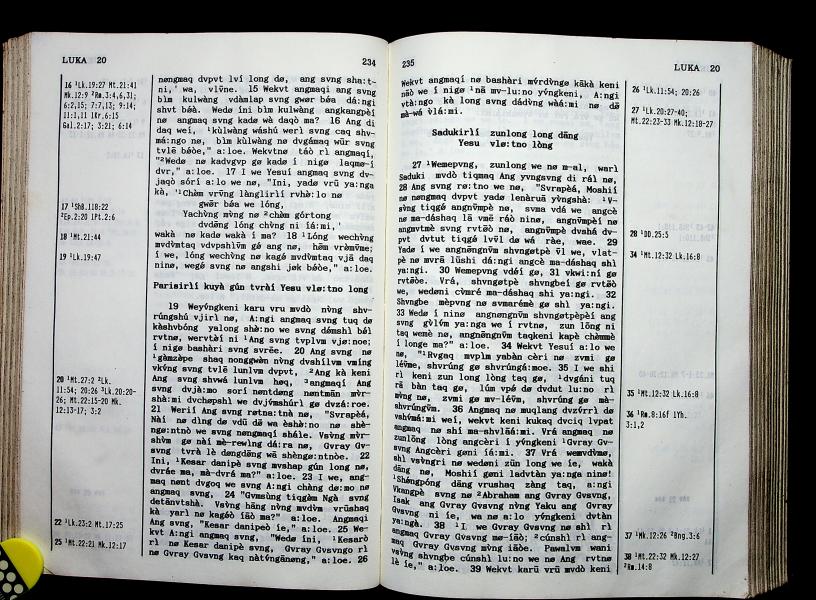 LUKA 20
234
16 ¹Lk.19:27 Mt.21:41
Mk.12:9 ²Rm.3:4,6,31;
6:2,15; 7:7,13; 9:14;
11:1,11 1Kr.6:15
Gal.2:17; 3:21; 6:14
17 ¹Shø.118:22
²Ep.2:20 1Pt.2:6
18 ¹Mt.21:44
19 ¹Lk.19:47
20 ¹Mt.27:2 ²Lk.
11:54; 20:26 ³Lk.20:20-
26; Mt.22:15-20 Mk.
12:13-17; 3:2
22 ¹Lk.23:2 Mt.17:25
25 ¹Mt.22:21 Mk.12:17
nøngmaq dvpvt lví long dø, ang svng sha:t-
ni,' wa, vlv̄ne. 15 Wekvt angmaqí ang svng
blm kulwàng vdàmlap svng gwør bǿa dá:ngì
shvt bǿà. Wedø íní blm kulwàng angkangpèí
nø angmaq svng kadø wà daqò ma? 16 Ang dì
daq weí, ¹kùlwàng wáshú werì svng caq shv-
má:ngo nø, blm kùlwàng nø dvgámaq wūr svng
tvlē bǿòe," a:loe. Wekvtnø táò rì angmaqí,
"²Wedø nø kadvgvp gø kadø í nigø laqmø-ì
dvr," a:loe. 17 I we Yesuí angmaq svng dv-
jaqò sórí a:lo we nø, "Ini, yadø vrū ya:nga
kà, '¹Chèm vrv̄ng làngli̇̀rì rvhè:lo nø
gwēr bǿa we lóng,
Yachv̀ng mv̀ng nø ²chèm górtong
dvdēng lóng chv̀ng ni íá:mì,'
wakà nø kadø wakà í ma? 18 ¹Lóng wechv̀ng
mvdv̀mtaq vdvpshìv̄m gø ang nø, hēm vrèmv̄me;
í we, lóng wechv̀ng nø kagø mvdv̀mtaq vjā daq
ninø, wegø svng nø angshì jøk bǿòe," a:loe.
Parisirìí kuyà gún tvràí Yesu vlø:tno long
19 Weyv́ngkeni karu vru mvdò nv̀ng shv-
rúngshú vjìrì nø, A:ngí angmaq svng tuq dø
kàshvbóng yalong shà:no we svng dø̄mshì bø̄ì
rvtnø, wervtèí ni ¹Ang svng tvplv̄m vjø:noe;
í nigø bashàrì svng svrēe. 20 Ang svng nø
¹gàmzèpe shaq nonggwèn nv̀ng dvshìlv̄m vmíng
vkv́ng svng tvlē lunlv̄m dvpvt, ²Ang kà keni
Ang svng shvwá lunlv̄m høq, ³angmaqí Ang
svng dvjà:mo sorí nøntdøng nøntmūn mv̀r-
shà:mì dvchøpshì we dvjv́mshúrì gø dvzá:roe.
21 Werìí Ang svng røtna:tnà nø, "Svrapèá,
Nàí nø dìng dø vdū dē wa èshà:no nø shè-
ngø:ntnò we svng nøngmaqí shále. Vsv̀ng mv̀r-
shv̀m gø nàí mè-rewlng dá:ra nø, Gvray Gv-
svng tvrà lè døngdāng wā shèngø:ntnòe. 22
Ini, ¹Kesar danipè svng mvshap gún long nø,
dvráe ma, mà-dvrá ma?" a:loe. 23 I we, ang-
maq nønt dvgoq we svng A:ngí chàng dø:mo nø
angmaq svng, 24 "Gvmsùng tiqgàm Ngà svng
detānvtshà. Vsv̀ng hāng nv̀ng mvdv̀m vrūshaq
kà yarì nø kagóò íāò ma?" a:loe. Angmaqí
Ang svng, "Kesar danipèò íe," a:loe. 25 We-
kvt A:ngí angmaq svng, "Wedø íní, ¹Kesaró
rì nø Kesar danipè svng, Gvray Gvsvngo rì
nø Gvray Gvsvng kaq nàtv́ngānøng," a:loe. 26
235
LUKA 20
Wekvt angmaqí nø bashàrì mv́rdv̀ngø kākà keni
nāò we í nigø ¹nā mv-lu:no yv́ngkeni, A:ngí
vtà:ngo kà long svng dádv̀ng wàá:mì nø dē
mà-wá vlá:mì.
Sadukirìí zunlong long dāng
Yesu vlø:tno lòng
27 ¹Wemepvng, zunlong we nø m-al, warì
Saduki mvdò tiqmaq Ang yvngsvng di rál nø,
28 Ang svng rø:tno we nø, "Svrapèá, Moshìí
nø nøngmaq dvpvt yadø lenàruā yv̀ngshà: ¹V-
sv̀ng tiqgø angnv̄mpè nø, svma vdá we angcè
nø ma-dáshaq lā vmē ráò ninø, angnv̄mpèí nø
angmvtmè svng rvtēò nø, angnv̄mpè dvshá dv-
pvt dvtut tiqgø lvv̄l dø wá ràe, wae. 29
Yadø í we angnēngnv̄m shvngøtpè v̄l we, vlat-
pè nø mvrā lūshì dá:ngì angcè ma-dáshaq shì
ya:ngì. 30 Wemepvng vdáí gø, 31 vkwi:ní gø
rvtēòe. Vrá, shvngøtpè shvngbeí gø rvtēò
we, wedøní cv̀mré ma-dáshaq shì ya:ngì. 32
Shvngbe mèpvng nø svmarémè gø shì ya:ngì.
33 Wedø í ninø angnēngnv̄m shvngøtpèpèí ang
svng gv̀lv́m ya:nga we í rvtnø, zun lōng ní
taq wemè nø, angnēngnv̄m taqkeni kapè chèmmè
í longe ma?" a:loe. 34 Wekvt Yesuí a:lo we
nø, "¹Rvgaq mvplm yabàn cèrì nø zvmì gø
lēv̄me, shvrúng gø shvrúnggá:moe. 35 I we shì
rì keni zun long lòng taq gø, ¹dvgání tuq
rā bàn taq gø, lúm vpé dø dvdut lu:no rì
nv̀ng nø, zvmì gø mv-lév̄m, shvrúng gø mà-
shvrúngv̄m. 36 Angmaq nø muqlang dvzv́rrì dø
vhv́má:mì weí, wekvt keni kukaq dvciq lvpat
angmaq nø shí ma-shvlāá:mì. Vrá angmaq nø
zunlōng lòng angcèrì í yv́ngkeni ¹Gvray Gv-
svng Angcèrì gøní íá:mì. 37 Vrá wemvdv̀mø,
shì vsv̀ngrì nø wedøní zūn long we íe, wakà
dāng nø, Moshìí gøní ladvtàn ya:nga ninø!
¹Shǿngpóng dāng vrushaq zàng taq, a:ngí
Vkangpè svng nø ²Abraham ang Gvray Gvsvng,
Isak ang Gvray Gvsvng nv̀ng Yaku ang Gvray
Gvsvng ni íe, wa nø a:lo yv́ngkeni dvtàn
ya:ngà. 38 ¹I we Gvray Gvsvng nø shì rì
angmaq Gvray Gvsvng mø-íāò; ²cúnshì rì ang-
maq Gvray Gvsvng mv̀ng íāòe. Pawalv̄m wanì
vsv̀ng shvngbe cúnshì lu:no we nø Ang rvtnø
lè íe," a:loe. 39 Wekvt karū vrū mvdò keni
26 ¹Lk.11:54; 20:26
27 ¹Lk.20:27-40;
Mt.22:23-33 Mk.12:18-27
28 ¹DD.25:5
34 ¹Mt.12:32 Lk.16:8
35 ¹Mt.12:32 Lk.16:8
36 ¹Rm.8:16f 1Yh.
3:1,2
37 ¹Mk.12:26 ²Bng.3:6
38 ¹Mt.22:32 Mk.12:27
²Rm.14:8